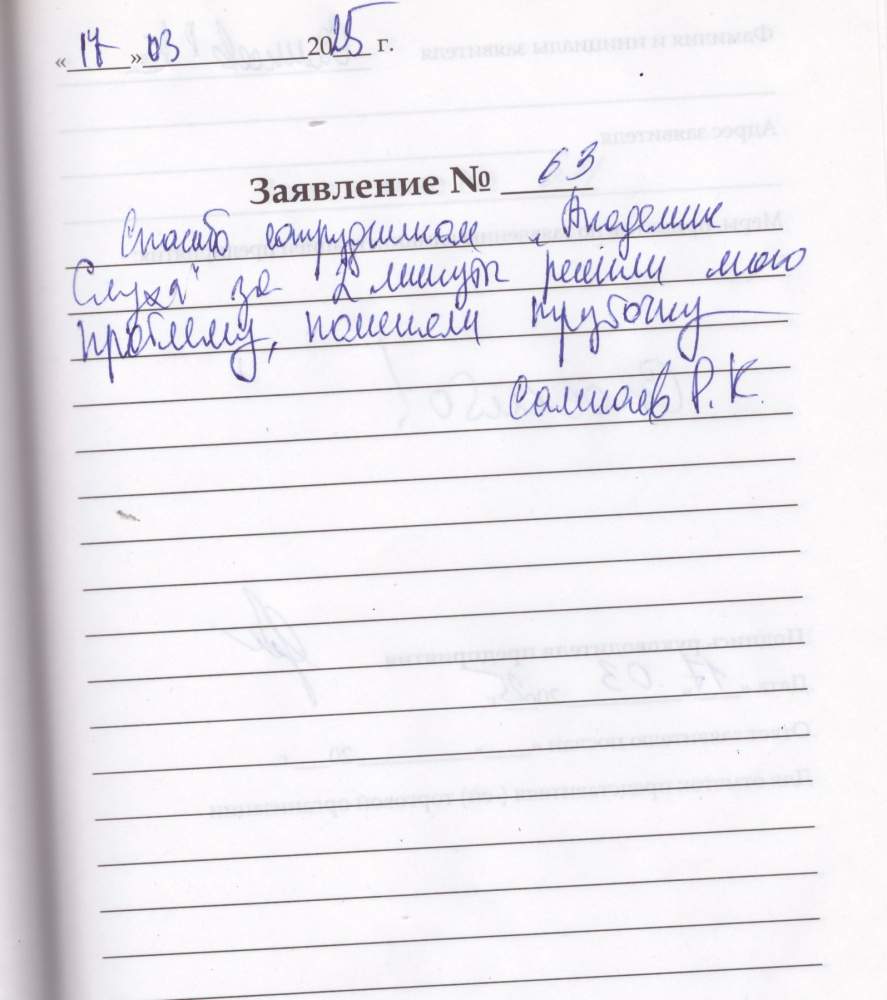 «17» 03 2025 г.
Заявление № 63
Спасибо сотрудникам "Академии
Слуха" за 2 минуты решили мою
проблему, поменяли трубочку
Р. К.